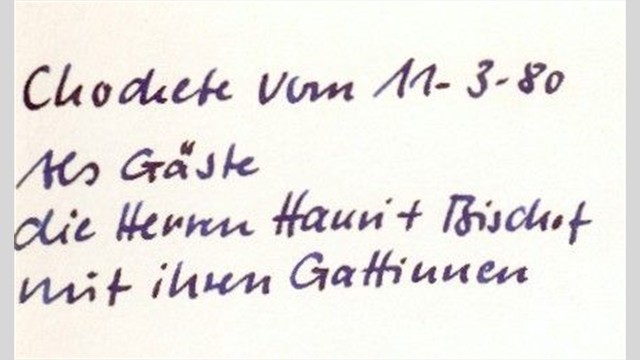 Chochete vom 11-3-80
Als Gäste
die Herren Hauri + Bischof
mit ihren Gattinnen